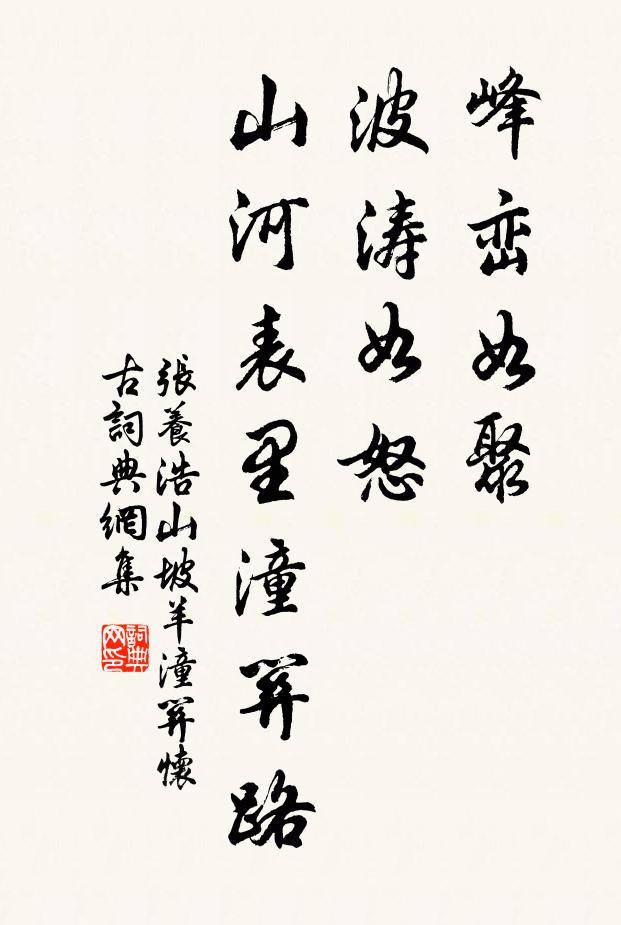 峰峦如聚
波涛如怒
山河表里潼関路
張養浩山坡羊潼関懷
古詞典網集
詞典网印